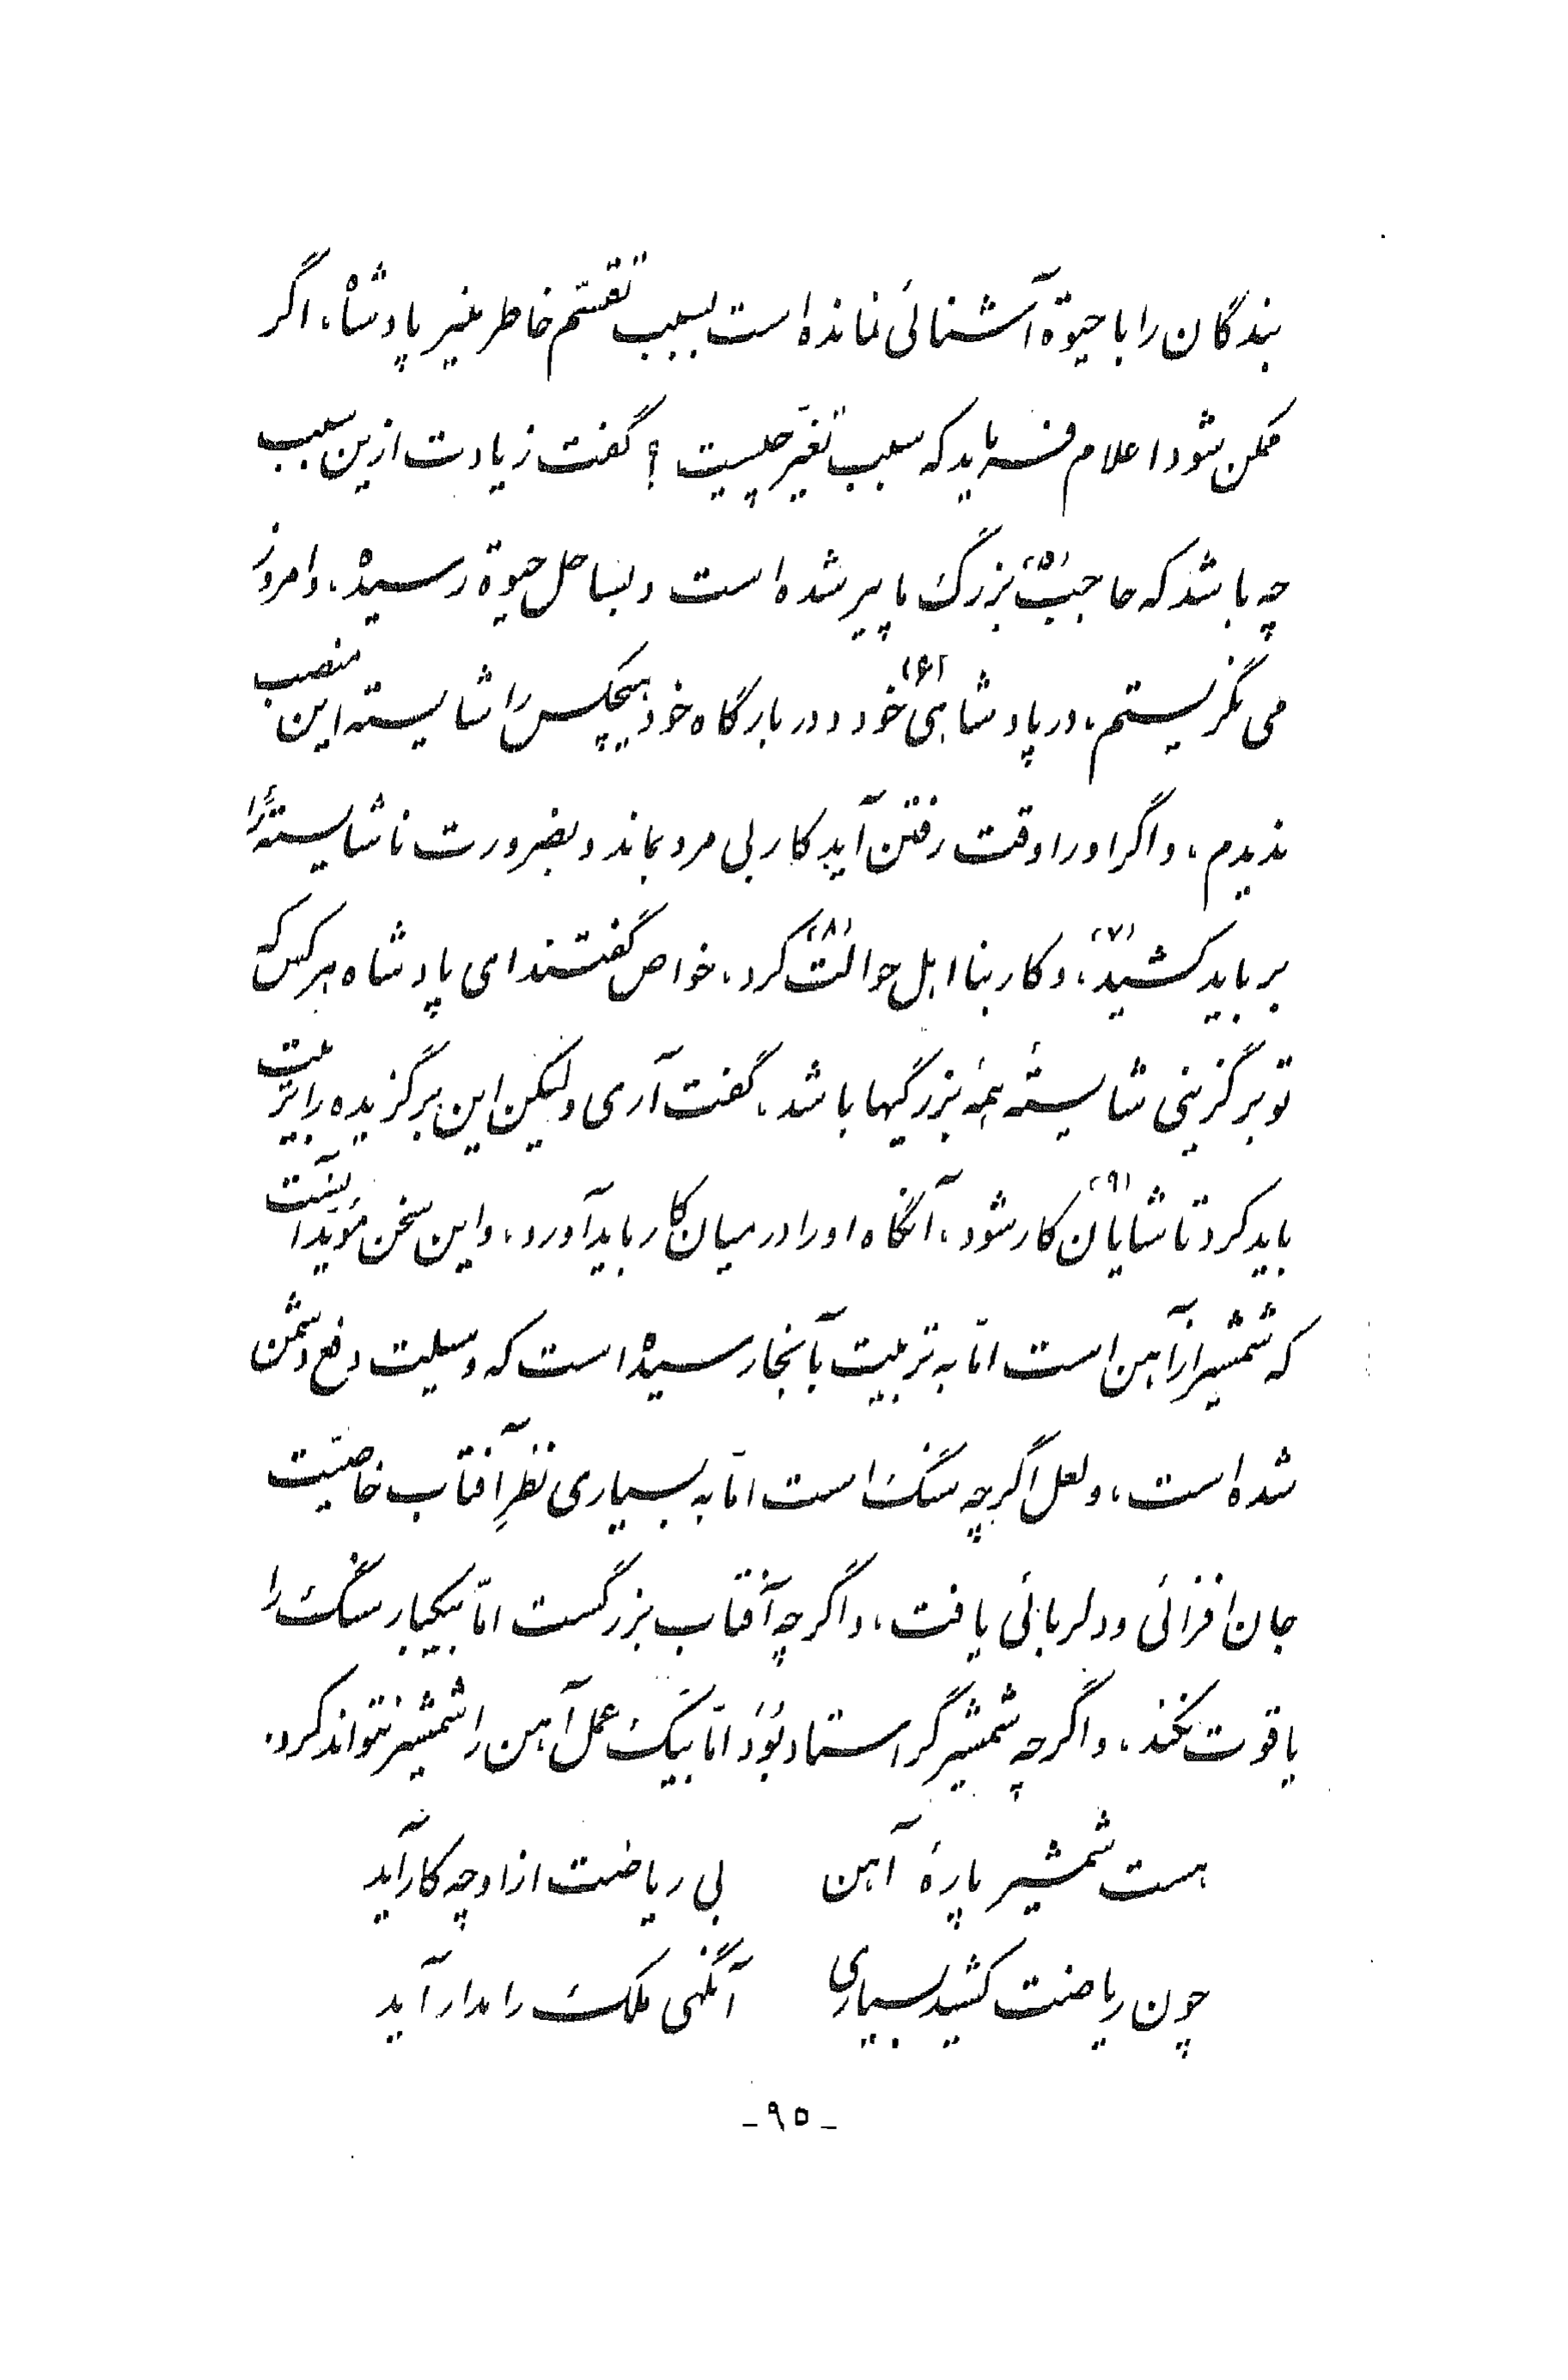 بندگان را با حیوة آشنائی نمانده است بسبب تقسّم خاطر منیر پادشاه، اگر
ممکن شود اعلام فرماید که سبب تغیّر چیست؟ گفت زیادت ازین سبب
چه باشد که حاجب (۵) بزرگ ما پیر شده است و بساحل حیوة رسیده، و امروز
می نگریستم، در پادشاهی (۶) خود و در بارگاه خود هیچکس را شایسته این منصب
ندیدم، و اگر او را وقت رفتن آید کار بی مرد بماند و بضرورت ناشایستهٔ را
بر باید کشید (۷)، و کار بنا اهل حوالت (۸) کرد، خواص گفتند ای پادشاه هر کس که
تو برگزینی شایستهٔ همهٔ بزرگیها باشد، گفت آری ولیکن این برگزیده را تربیت
باید کرد تا شایان (۹) کار شود، آنگاه او را در میان کار باید آورد، و این سخن مؤیّد آنست
که شمشیر از آهن است امّا به تربیت بآنجا رسیده است که وسیلت دفع دشمن
شده است، و لعل اگرچه سنگ است امّا به بسیاری نظرِ آفتاب خاصیّت
جان افزائی و دلربائی یافت، و اگرچه آفتاب بزرگست امّا بیکبار سنگ را
یاقوت نکند، و اگرچه شمشیرگر استاد بُوَد امّا بیک عمل آهن را شمشیر نتواند کرد.
هست شمشیر پارهٔ آهن بی ریاضت ازاو چه کار آید
چون ریاضت کشید بسیاری آنگهی ملک را مدار آید
-۹۵-